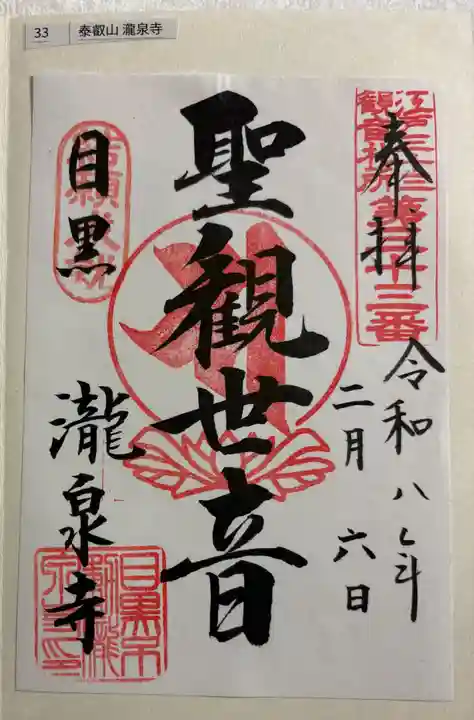 33 泰叡山 瀧泉寺
奉拝
令和八年
二月六日
聖観世音
目黒
瀧泉寺
江戸三十三
観音札所
第三十三番